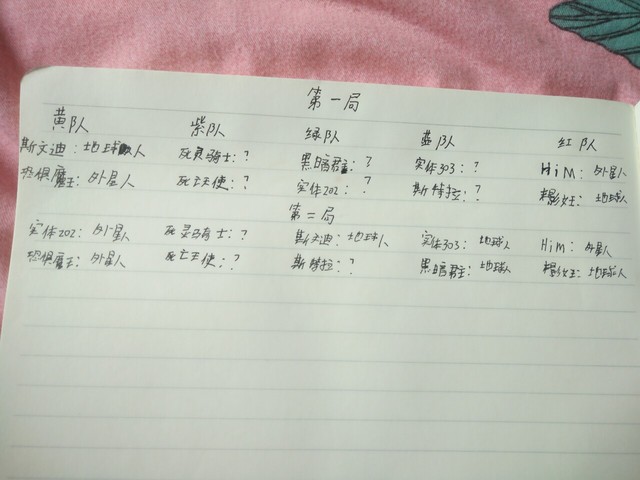 第一局
黄队 紫队 绿队 蓝队 红队
斯文迪：地球人 死灵骑士：？ 黑暗君主：？ 实体303：？ HiM：外星人
恐惧魔王：外星人 死亡天使：？ 实体202：？ 斯特拉：？ 影女王：地球人
第二局
实体202：外星人 死灵骑士：？ 斯文迪：地球人 实体303：地球人 Him：外星人
恐惧魔王：外星人 死亡天使：？ 斯特拉：？ 黑暗君主：地球人 影女王：地球人